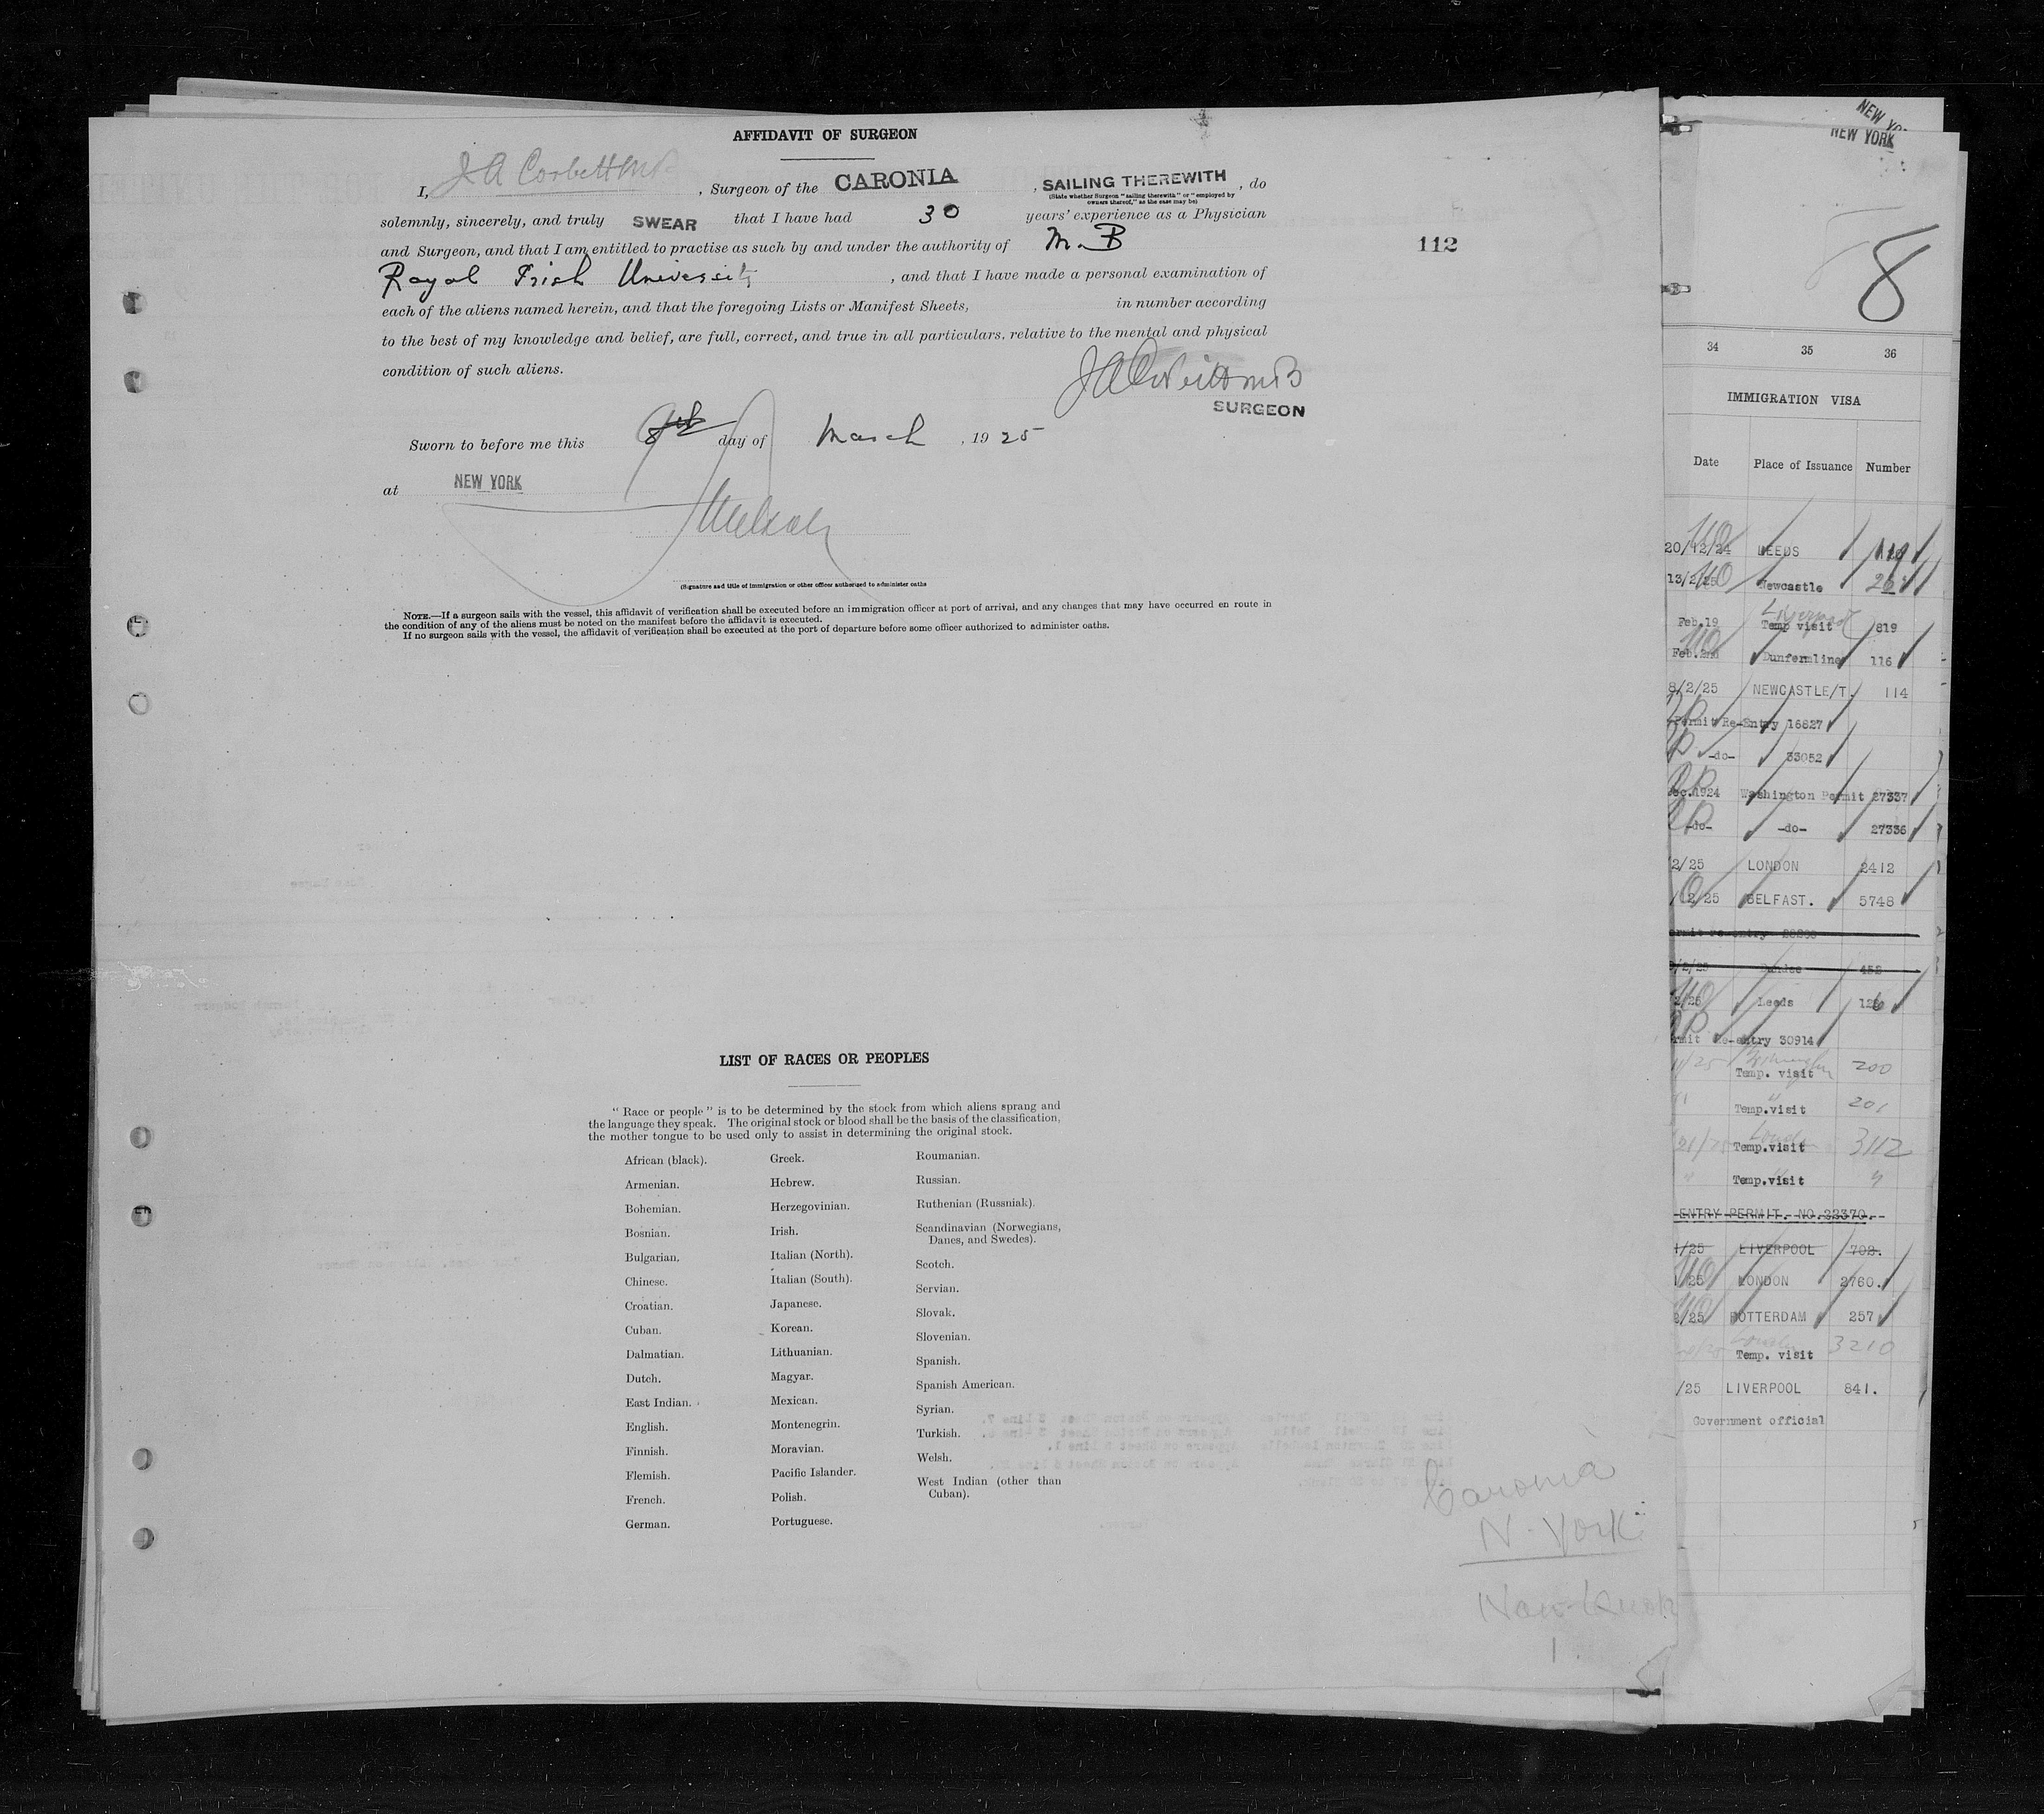 AFFIDAVIT OF SURGEON
I, J A Corbett M B, Surgeon of the CARONIA, SAILING THEREWITH, do
(State whether Surgeon "sailing therewith" or "employed by
owners thereof," as the case may be)
solemnly, sincerely, and truly SWEAR that I have had 30 years' experience as a Physician
and Surgeon, and that I am entitled to practise as such by and under the authority of M.B
Royal Irish University, and that I have made a personal examination of
each of the aliens named herein, and that the foregoing Lists or Manifest Sheets, in number according
to the best of my knowledge and belief, are full, correct, and true in all particulars, relative to the mental and physical
condition of such aliens.
J A Corbett M B
SURGEON
Sworn to before me this day of March, 1925
at NEW YORK
(Signature and title of immigration or other officer authorized to administer oaths
NOTE.—If a surgeon sails with the vessel, this affidavit of verification shall be executed before an immigration officer at port of arrival, and any changes that may have occurred en route in
the condition of any of the aliens must be noted on the manifest before the affidavit is executed.
If no surgeon sails with the vessel, the affidavit of verification shall be executed at the port of departure before some officer authorized to administer oaths.
112
LIST OF RACES OR PEOPLES
"Race or people" is to be determined by the stock from which aliens sprang and
the language they speak. The original stock or blood shall be the basis of the classification,
the mother tongue to be used only to assist in determining the original stock.
African (black).
Armenian.
Bohemian.
Bosnian.
Bulgarian.
Chinese.
Croatian.
Cuban.
Dalmatian.
Dutch.
East Indian.
English.
Finnish.
Flemish.
French.
German.
Greek.
Hebrew.
Herzegovinian.
Irish.
Italian (North).
Italian (South).
Japanese.
Korean.
Lithuanian.
Magyar.
Mexican.
Montenegrin.
Moravian.
Pacific Islander.
Polish.
Portuguese.
Roumanian.
Russian.
Ruthenian (Russniak).
Scandinavian (Norwegians,
Danes, and Swedes).
Scotch.
Servian.
Slovak.
Slovenian.
Spanish.
Spanish American.
Syrian.
Turkish.
Welsh.
West Indian (other than
Cuban).
Caronia
N. York
1
NEW YORK
8
34 35 36
IMMIGRATION VISA
Date Place of Issuance Number
20/12/24 LEEDS
13/2/25 Newcastle
Liverpool
Feb.19 Temp visit 819
Feb. Dunfermline 116
8/2/25 NEWCASTLE/T. 114
Permit Re-Entry 16827
-do- 33052
Dec.1924 Washington Permit 27337
-do- -do- 27336
2/25 LONDON 2412
12/25 BELFAST. 5748
Dundee 452
2/25 Leeds
Re-entry 30914
Temp. visit 200
" Temp.visit 201
London
Temp.visit 3112
" Temp.visit "
ENTRY PERMIT. NO.22370.
1/25 LIVERPOOL 702.
25 LONDON 2760.
2/25 ROTTERDAM 257
Temp. visit 3210
/25 LIVERPOOL 841.
Government official